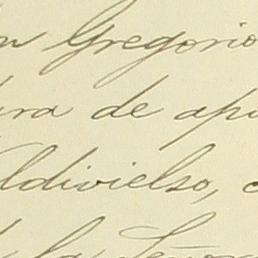 n Gregorio
ura de apo
aldivielso, c
la Señor